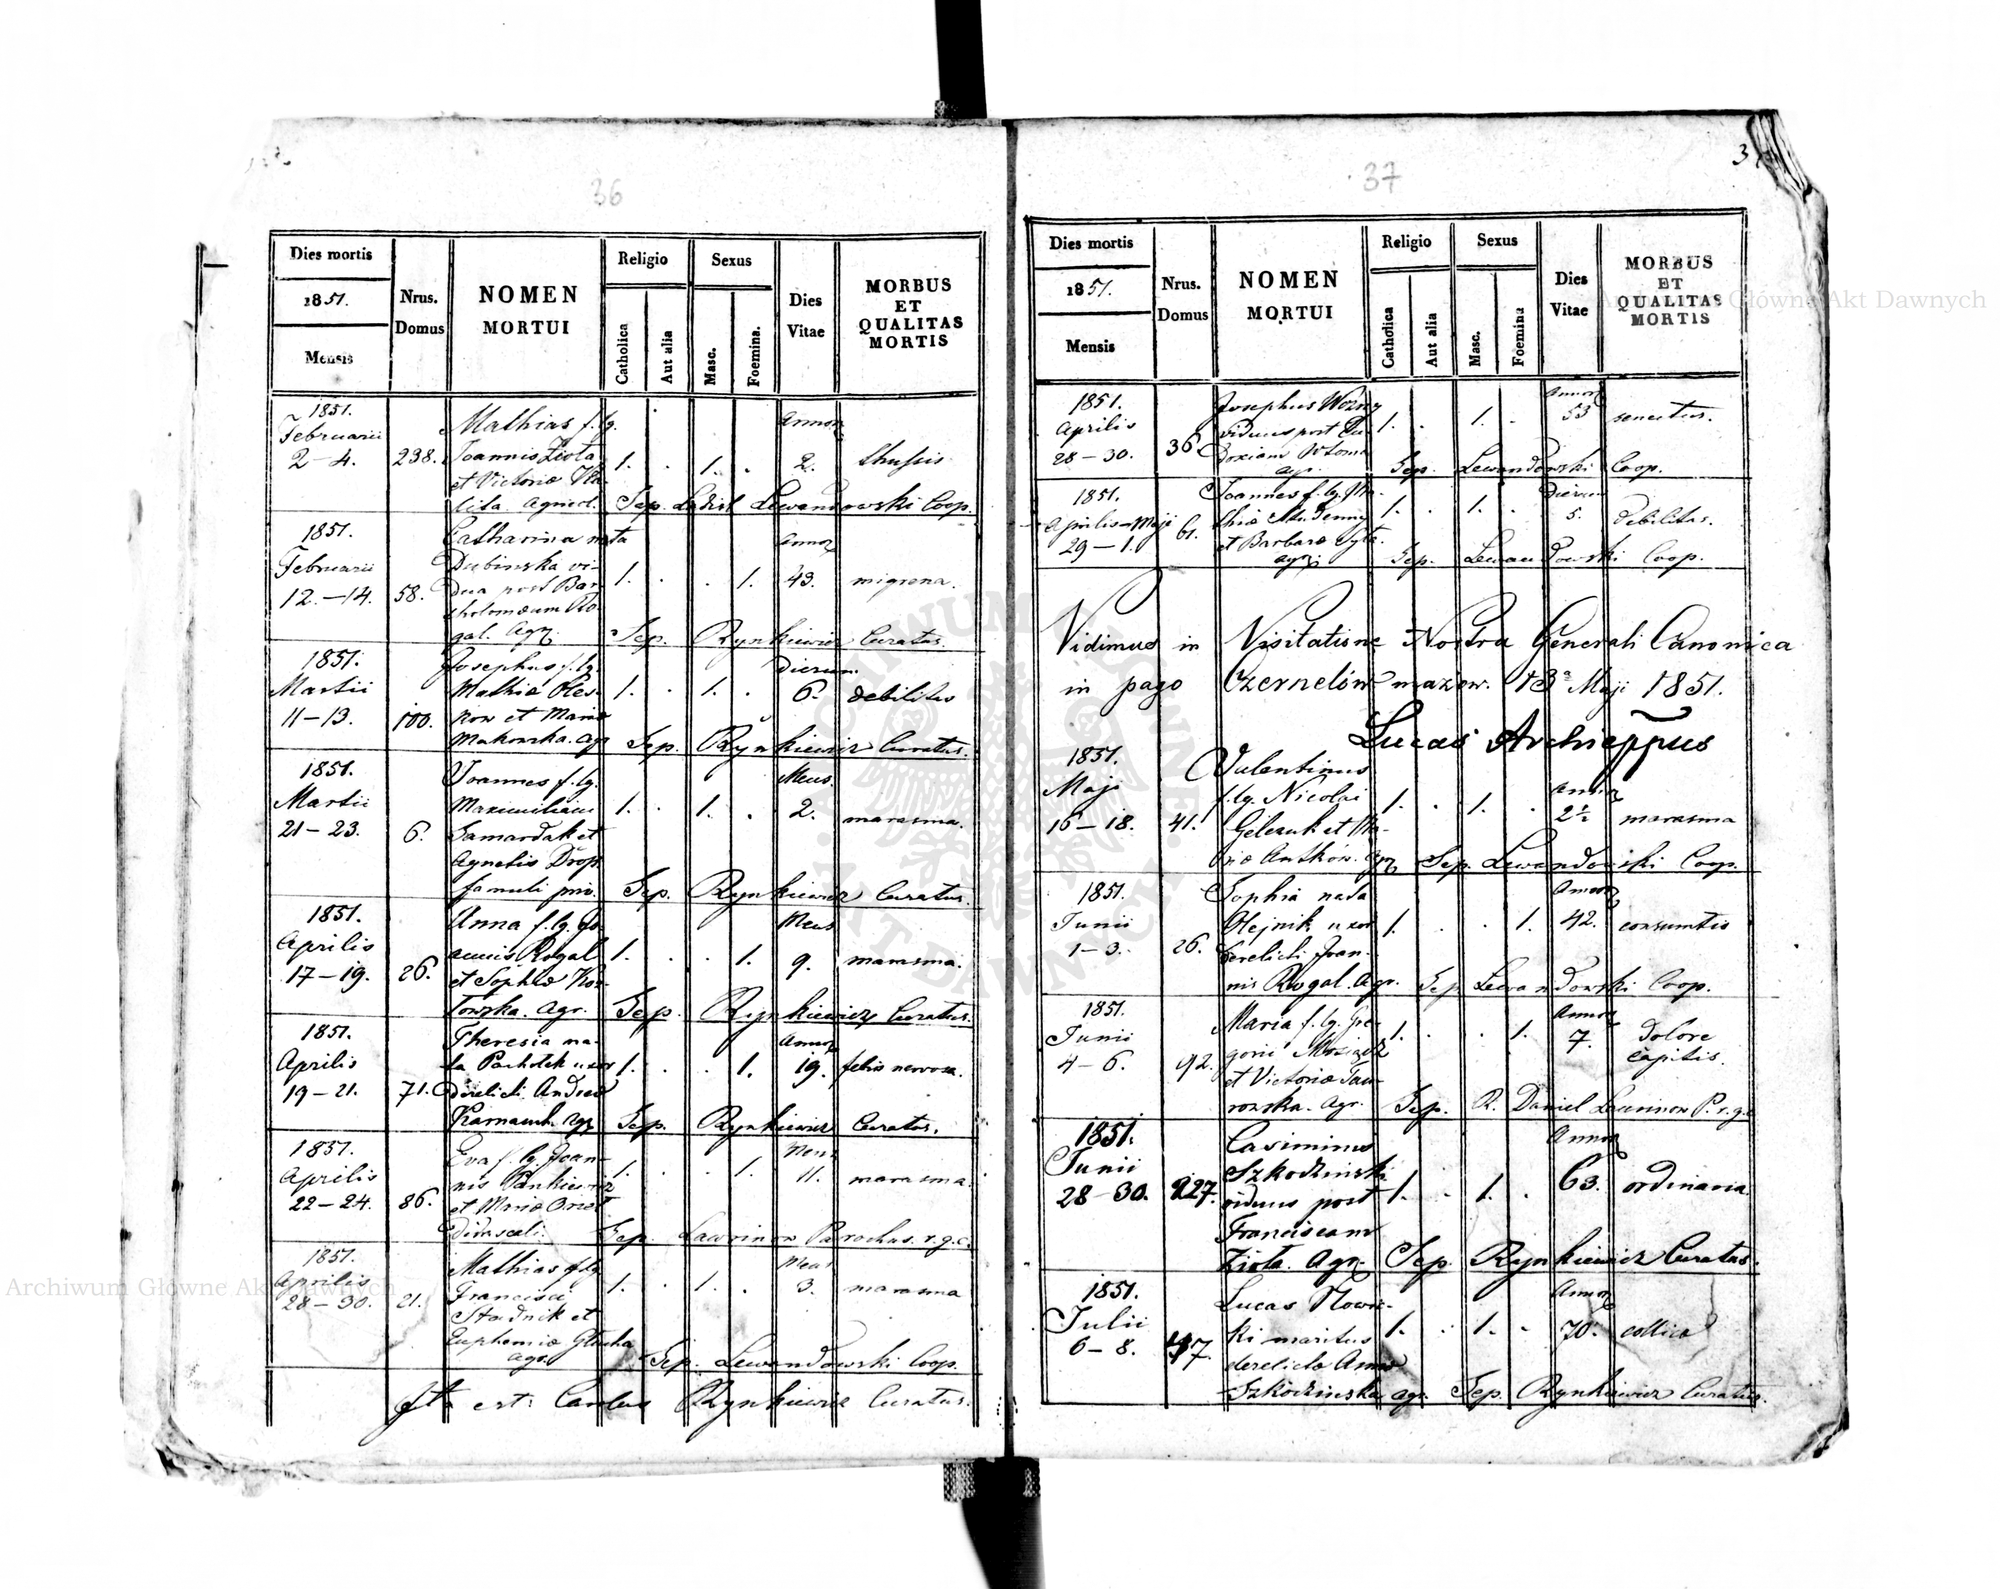 36
Dies mortis
1851.
Mensis
Nrus.
Domus
NOMEN
MORTUI
Religio
Catholica
Aut alia
Sexus
Masc.
Foemina.
Dies
Vitae
MORBUS
ET
QUALITAS
MORTIS
1851.
Februarii
2-4.
238.
Mathias f. lg.
Joannis Ziota
et Victoriæ
Agricol.
1. . 1. .
Annor
2.
thussis
Sep. Ladisl Lewandowski Coop.
1851.
Februarii
12.-14.
58.
Catharina nata
Dubinska vi-
dua post Bar-
tholomæum Ro-
gal. Agr.
1. . . 1.
Annor
43.
migrena.
Sep. Rynkiewicz Curatus.
1851.
Martii
11-13.
100.
Josephus f. lg.
Mathiæ Oles-
kow et Mariæ
Makowska. Agr
1. . 1. .
Dierum
6.
debilitas
Sep. Rynkiewicz Curatus.
1851.
Martii
21-23.
6.
Joannes f. lg.
Maximiliani
Samardak et
Agnetis Drop.
famuli
1. . 1. .
Mens.
2.
marasma.
Sep. Rynkiewicz Curatus.
1851.
Aprilis
17-19.
26.
Anna f. lg. Jo-
annis Rogal
et Sophiæ Koz-
lowska. Agr.
1. . . 1.
Mens
9.
marasma.
Sep. Rynkiewicz Curatus.
1851.
Aprilis
19-21.
71.
Theresia na-
ta Pacholek uxor
derelicti Andreæ
Karnauch Agr
1. . . 1.
Annor
19.
febris nervosa.
Sep. Rynkiewicz Curatus.
1851.
Aprilis
22-24.
86.
Eva f. lg. Joan-
nis Pankiewicz
et Mariæ
1. . . 1.
Mens
11.
marasma.
Sep. Lawrinow Parochus. r.g.c.
1851.
Aprilis
28-30.
21.
Mathias f. lg
Francisci
Stadnik et
Euphemiæ Glucha
agr.
1. . 1. .
Mens
3.
marasma
Sep. Lewandowski Coop.
Ita est: Carolus Rynkiewicz Curatus.
37
Dies mortis
1851.
Mensis
Nrus.
Domus
NOMEN
MORTUI
Religio
Catholica
Aut alia
Sexus
Masc.
Foemina
Dies
Vitae
MORBUS
ET
QUALITAS
MORTIS
1851.
Aprilis
28-30.
36
Josephus Wozny
viduus post Eu-
doxiam
agr.
1. . 1. .
Annor
53
senectus.
Sep. Lewandowski Coop.
1851.
Aprilis-Maji
29-1.
61.
Joannes f. lg. Ma-
thiæ
et Barbaræ
agr.
1. . 1. .
Dierum
5.
debilitas.
Sep. Lewandowski Coop.
Vidimus in Visitatione Nostra Generali Canonica
in pago Czernelów mazow. 13ª Maji 1851.
Lucas Archieppus
1851.
Maji
16-18.
41.
Valentinus
f. lg. Nicolai
Gelezuk et Ma-
riæ Antków. Agr
1. . 1. .
Annor
2½
marasma
Sep. Lewandowski Coop.
1851.
Junii
1-3.
26.
Sophia nata
Olejnik uxor
derelicti Joan-
nis Rogal. Agr.
1. . . 1.
Annor
42.
consumtio
Sep Lewandowski Coop.
1851.
Junii
4-6.
92.
Maria f. lg. Gre-
gorii
et Victoriæ Taw-
rowska. Agr.
1. . . 1.
Annor
7.
dolore
capitis.
Sep. R. Daniel Lawrinow P. r.g.c
1851.
Junii
28-30.
227.
Casimirus
Szkodzinski
viduus post
Franciscam
Ziota. Agr.
1. . 1. .
Annor
63.
ordinaria
Sep. Rynkiewicz Curatus.
1851.
Julii
6-8.
Lucas Nowic-
ki maritus
derelictæ Annæ
Szkodzinska agr.
1. . 1. .
Annor
70.
collica
Sep. Rynkiewicz Curatus.
Archiwum Główne Akt Dawnych
Archiwum Główne Akt Dawnych
ARCHIWUM GŁÓWNE AKT DAWNYCH